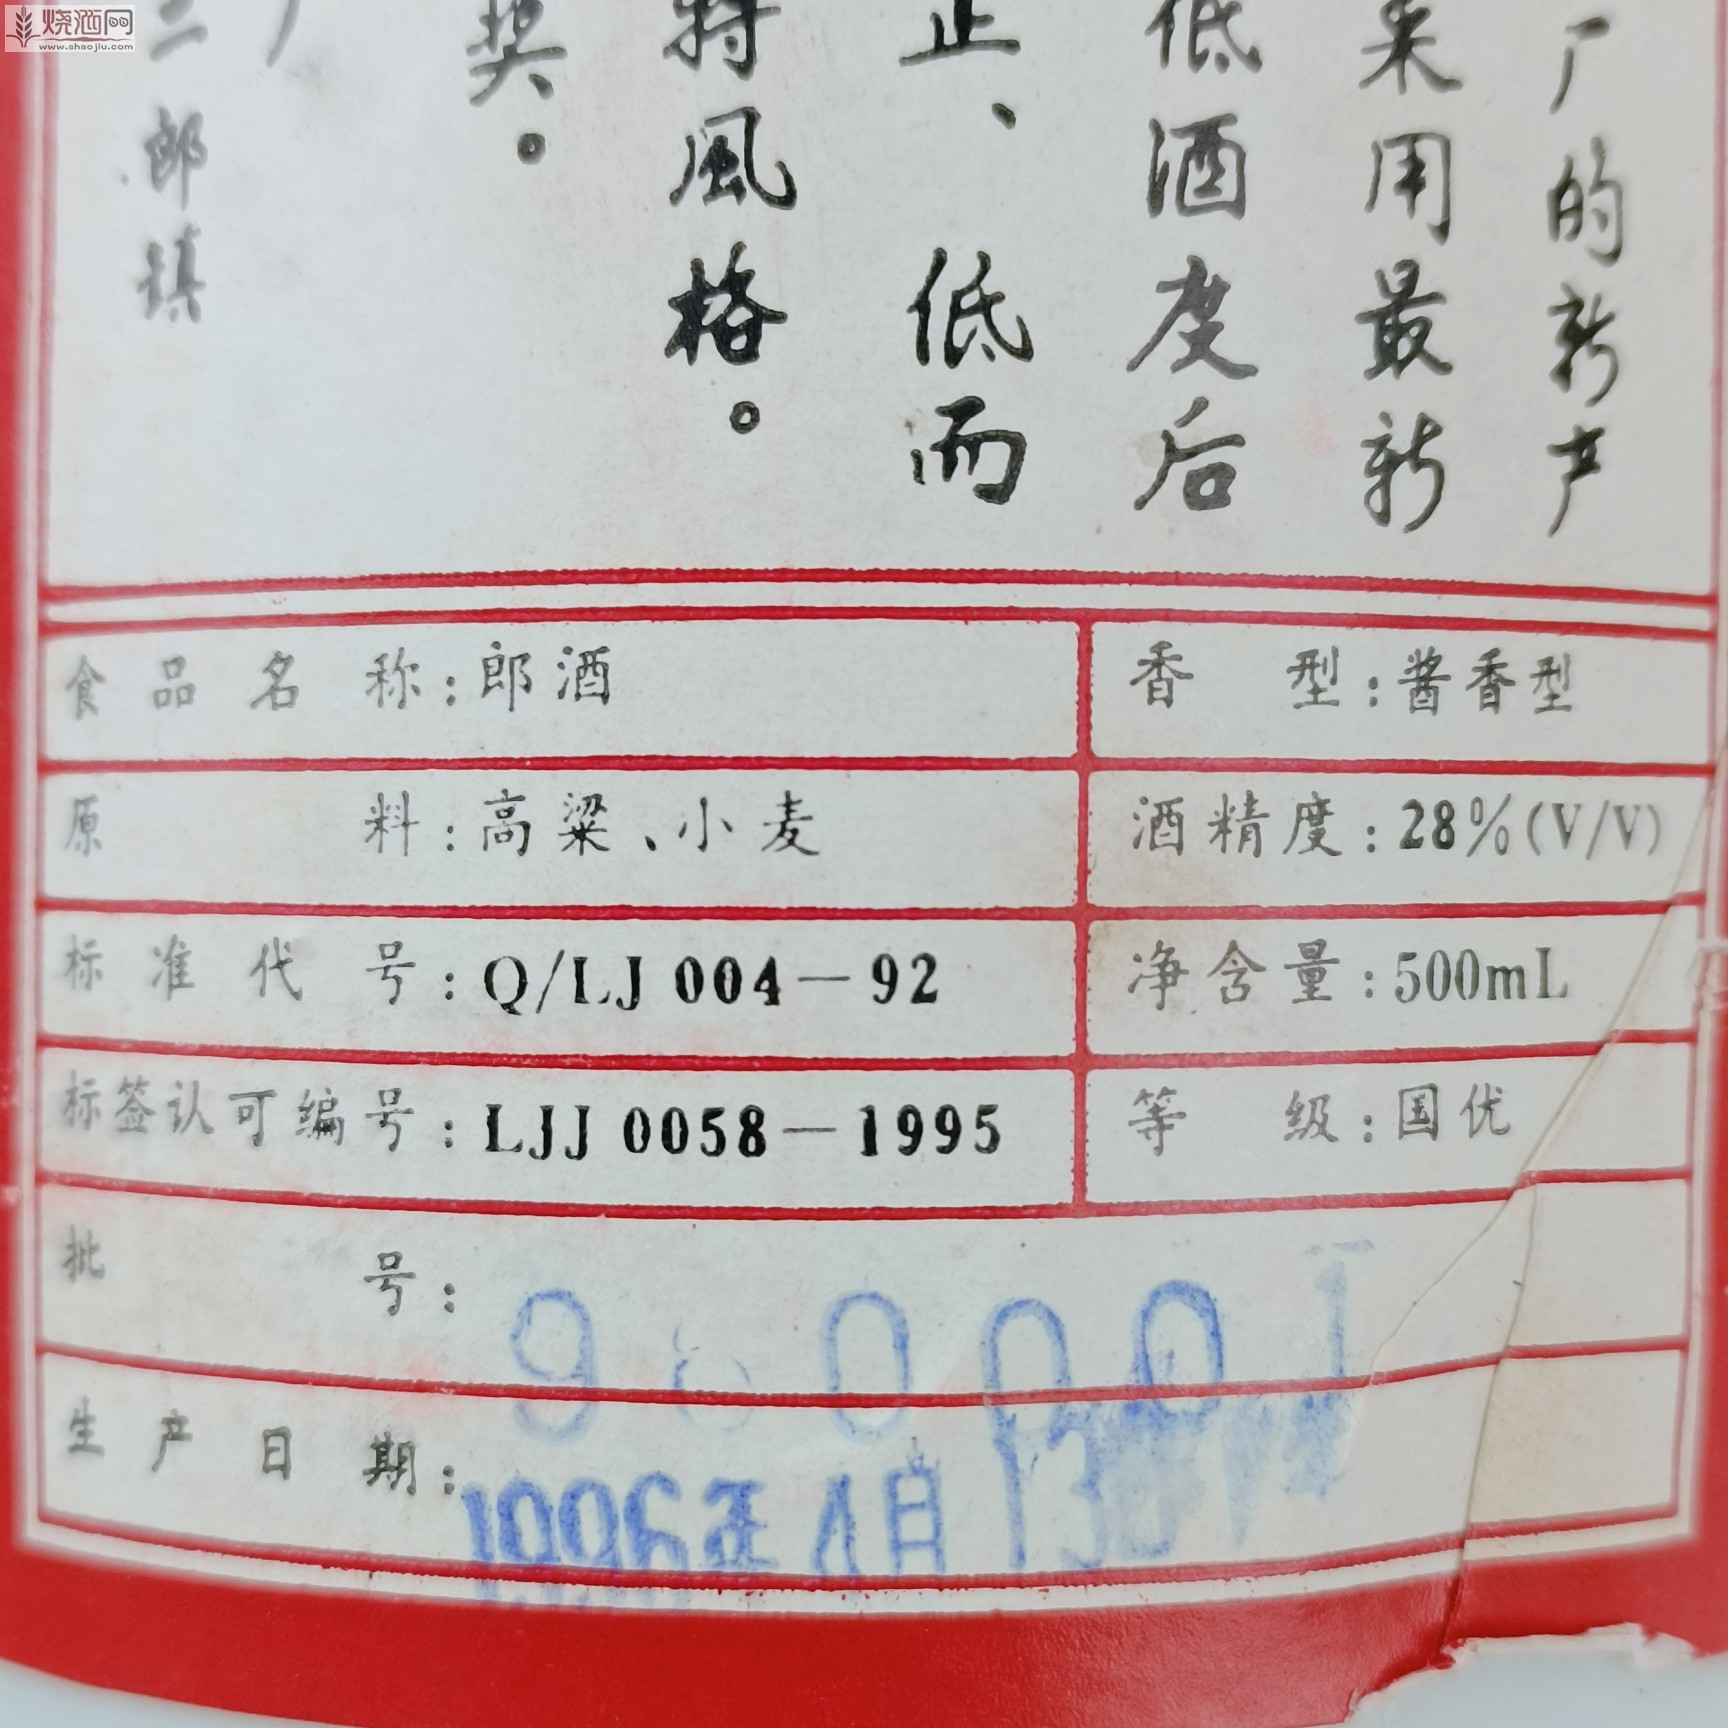 烧酒网
www.shaojiu.com
厂的新产
采用最新
低酒度后
正、低而
特風格。
奖。
厂
二郎镇
食品名称：郎酒
香型：酱香型
原料：高粱、小麦
酒精度：28%(V/V)
标准代号：Q/LJ 004—92
净含量：500mL
标签认可编号：LJJ 0058—1995
等级：国优
批号：
生产日期：1996年4月13日